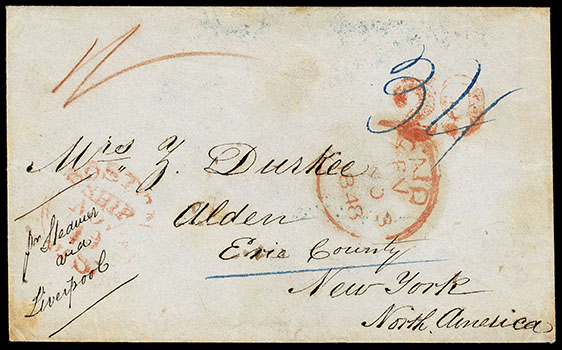 34
29
Mrs Z. Durkee
Alden
Erie County
New York
North America
pr Steamer
via
Liverpool
BOSTON
SHIP
PAID
1848